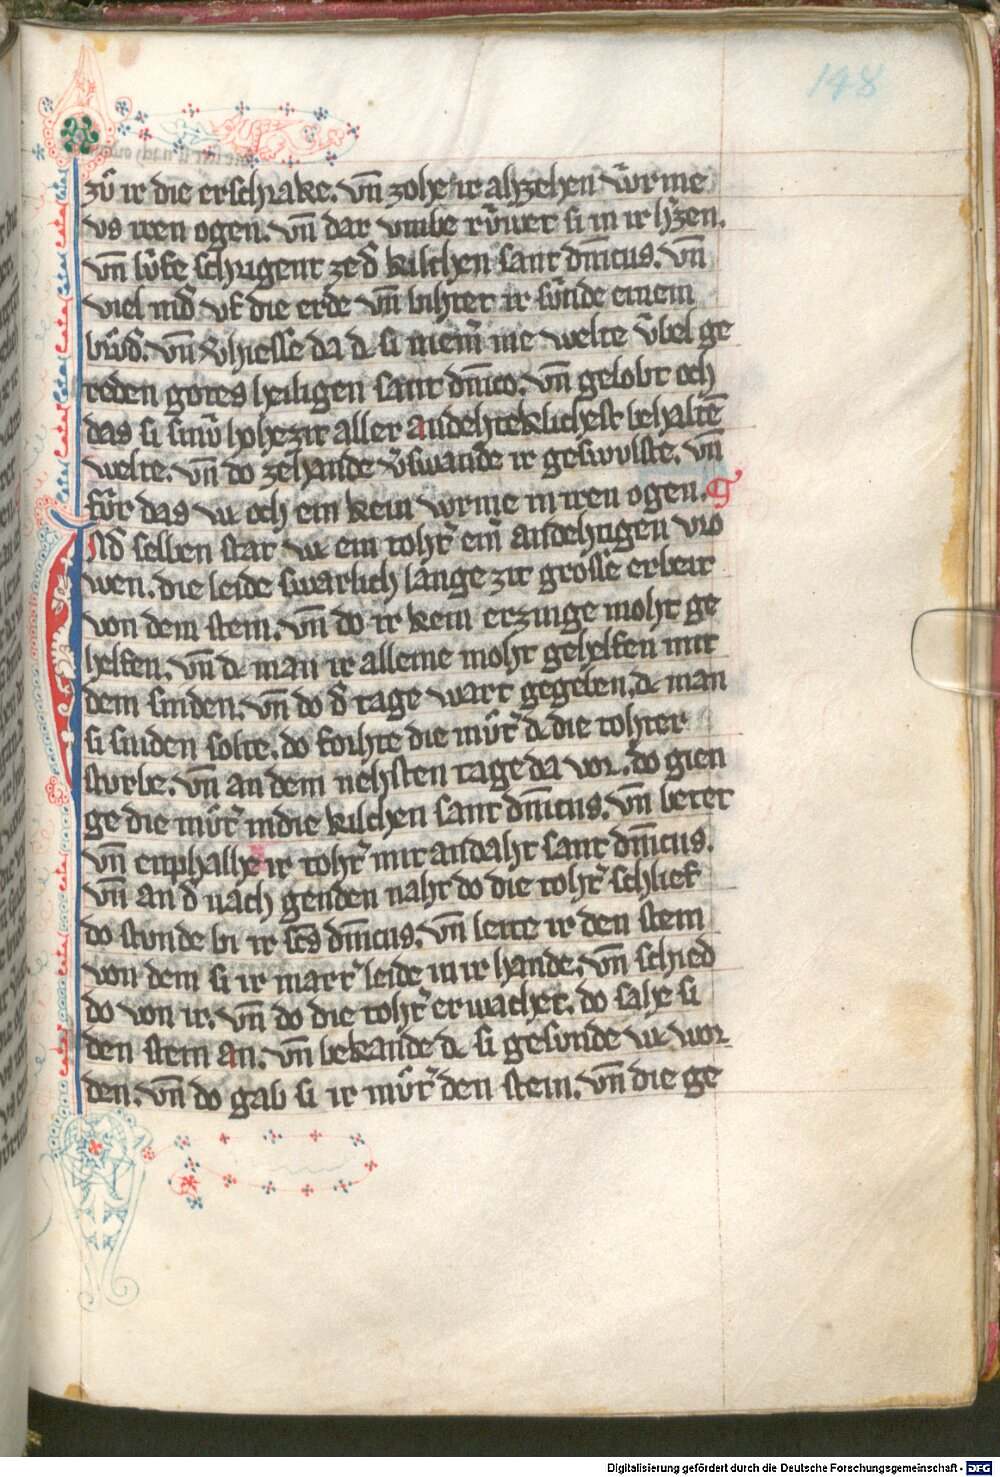 148
zů ir die erschrake. vn̄ zohe ir ahzehen wᵛrme
vs iren ogen. vn̄ dar vmbe rᵛwet si in ir h̕zen.
vn̄ lᵛfe schrigent ze d̕ kilchen sant dn̄icus. vn̄
viel nid̕ vf die erde vn̄ bihtet ir sᵛnde einem
brůd̕. vn̄ v̕hiesse da dc si niem̕ me welte v̕bel ge
reden gotes heiligen sant dn̄ico. vn̄ gelobt och
das si sinᵛ hohezit aller andehteklichest behaltē
welte. vn̄ do zehande v̕swande ir geswulste. vn̄
fᵛr das wc och ein kein wrme in iren ogen.
In d̕ selben stat wc ein toht̕ ein̕ andehtigen vro
wen. die leide swarlich lange zit grosse erbeit
von dem stein. vn̄ do ir kein erzinge moht ge
helfen. vn̄ dc man ir alleine moht gehelfen mit
dem sniden. vn̄ do d̕ tage wart gegeben. dc man
si sniden solte. do forhte die můt̕ dc die tohter
sturbe. vn̄ an dem nehsten tage da vor. do gien
ge die můt̕ in die kilchen sant dn̄icus. vn̄ betet
vn̄ enphalhe ir toht̕ mit andaht sant dn̄icus.
vn̄ an d̕ nach genden naht do die toht̕ schlief
do stunde bi ir sc̄s dn̄icus. vn̄ leite ir den stein
von dem si ir mart̕ leide in ir hande. vn̄ schied
do von ir. vn̄ do die toht̕ erwachet. do sahe si
den stein an. vn̄ bekande dc si gesunde wc wor
den. vn̄ do gab si ir můt̕ den stein. vn̄ die ge
Digitalisierung gefördert durch die Deutsche Forschungsgemeinschaft - DFG